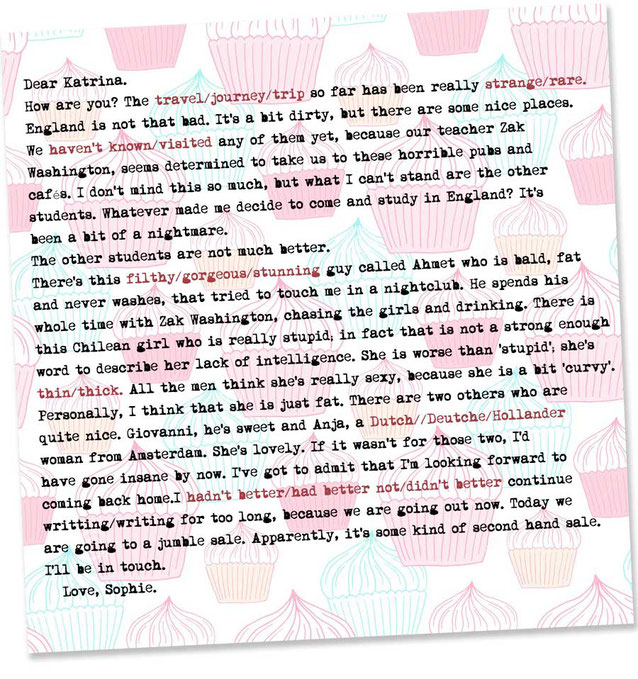 Dear Katrina.
How are you? The travel/journey/trip so far has been really strange/rare.
England is not that bad. It's a bit dirty, but there are some nice places.
We haven't known/visited any of them yet, because our teacher Zak
Washington, seems determined to take us to these horrible pubs and
cafés. I don't mind this so much, but what I can't stand are the other
students. Whatever made me decide to come and study in England? It's
been a bit of a nightmare.
The other students are not much better.
There's this filthy/gorgeous/stunning guy called Ahmet who is bald, fat
and never washes, that tried to touch me in a nightclub. He spends his
whole time with Zak Washington, chasing the girls and drinking. There is
this Chilean girl who is really stupid; in fact that is not a strong enough
word to describe her lack of intelligence. She is worse than 'stupid'; she's
thin/thick. All the men think she's really sexy, because she is a bit 'curvy'.
Personally, I think that she is just fat. There are two others who are
quite nice. Giovanni, he's sweet and Anja, a Dutch//Deutche/Hollander
woman from Amsterdam. She's lovely. If it wasn't for those two, I'd
have gone insane by now. I've got to admit that I'm looking forward to
coming back home.I hadn't better/had better not/didn't better continue
writting/writing for too long, because we are going out now. Today we
are going to a jumble sale. Apparently, it's some kind of second hand sale.
I'll be in touch.
Love, Sophie.